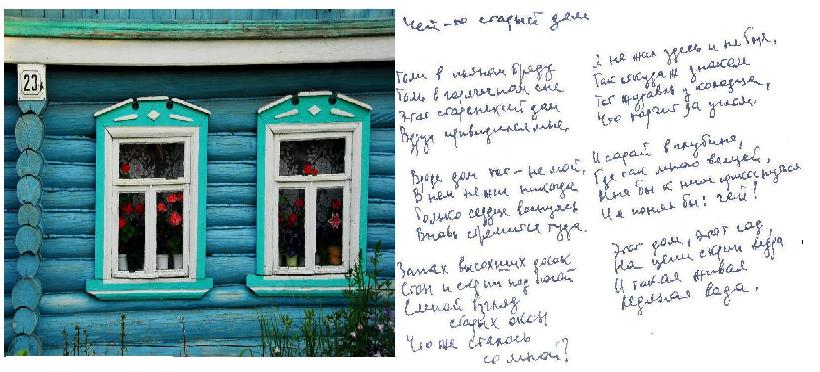 23
Чей-то старый дом
То ли в пьяном бреду
То ль в горячечном сне
Этот старенький дом
Вдруг привиделся мне.
Вроде дом тот - не мой,
В нём не жил никогда
Только сердце волнуясь
Вновь стремится туда.
Запах высохших досок
Стон и скрип под ногой
Слепой взгляд
старых окон
Что же сталось
со мной?
Я не жил здесь и не был,
Так откуда ж знаком
Тот журавль у колодца,
Что торчит за углом.
И сарай в глубине,
Где так много вещей,
Мне бы к ним прикоснуться
И я понял бы: чей!
Этот дом, этот сад,
На цепи скрип ведра
И такая живая
Ледяная вода.